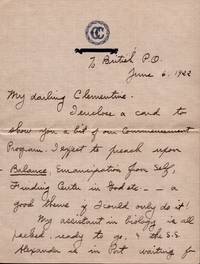 To British P.O.
June 6, 1922
My darling Clementine.
I enclose a card to
show you a bit of our Commencement
Program. I expect to preach upon
Balance, Emancipation from Self,
Finding Center in God etc - - a
good theme if I could only do it!
My assistant in biology is all
packed, ready to go, & the S.S.
Alexander is in Port waiting for